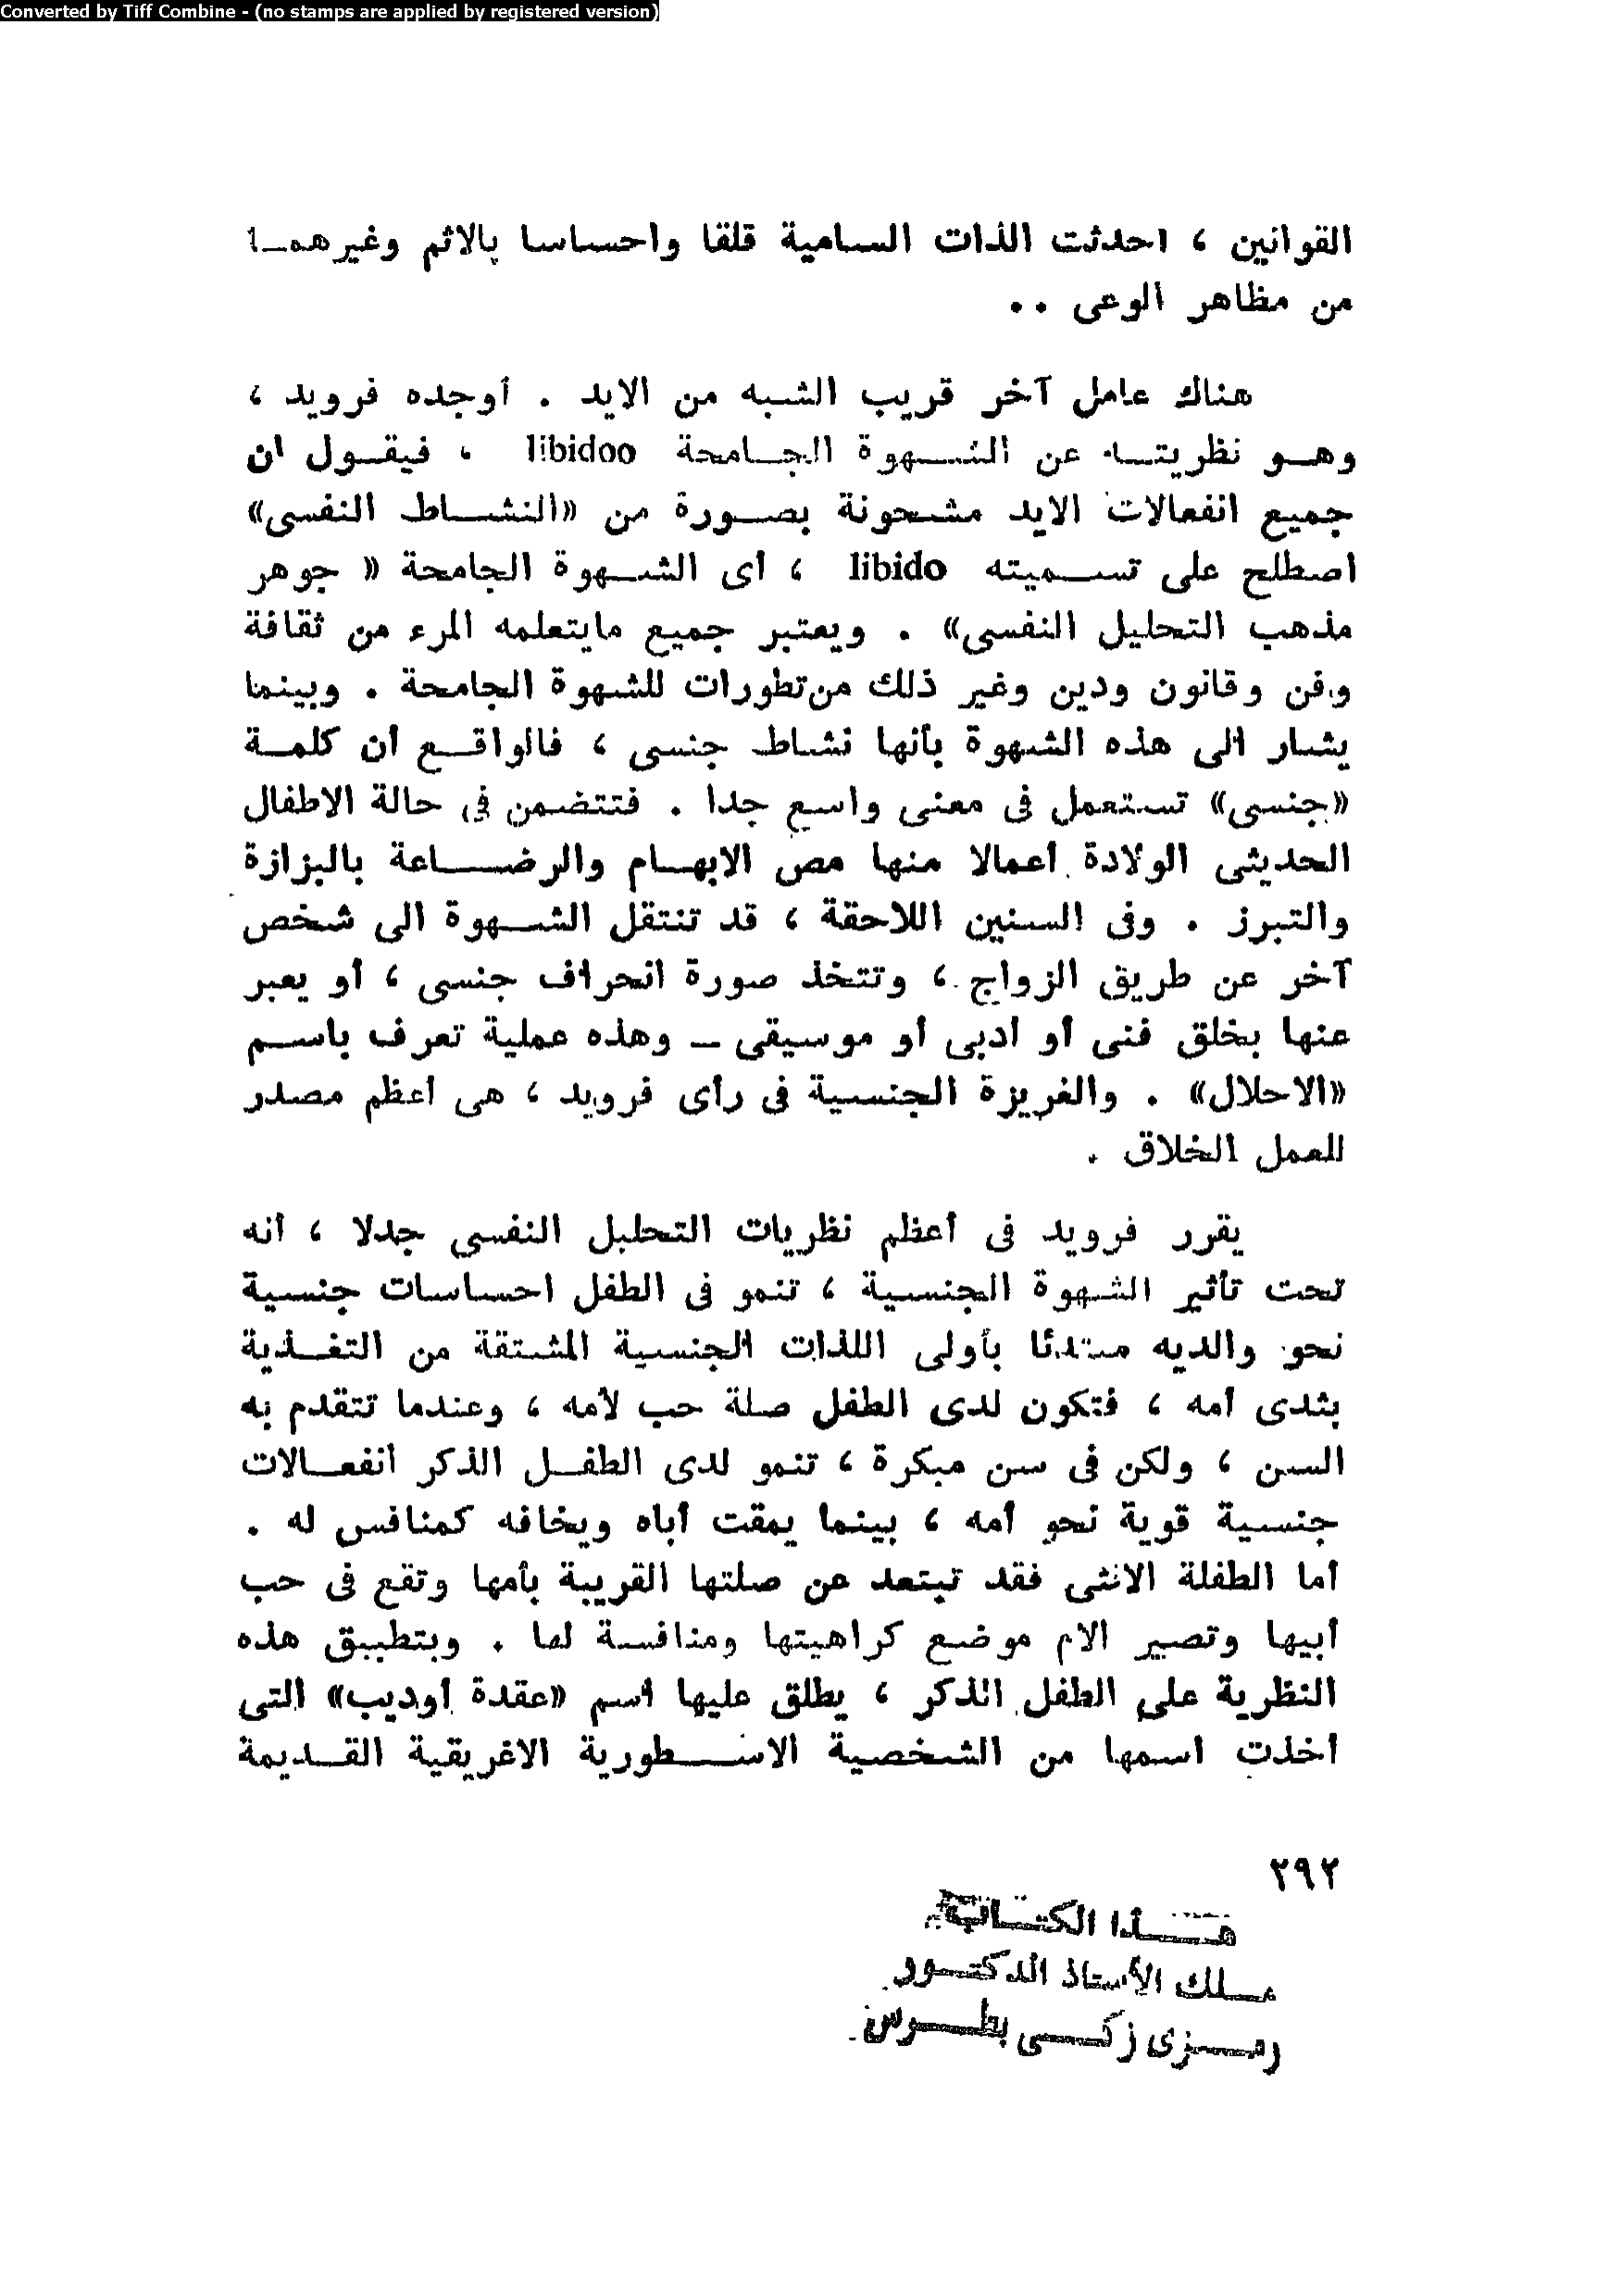 Converted by Tiff Combine - (no stamps are applied by registered version)
القوانين ، احدثت الذات السامية قلقا واحساسا بالاثم وغيرهما
من مظاهر الوعى ..
هناك عامل آخر قريب الشبه من الايد . أوجده فرويد ،
وهو نظريته عن الشهوة الجامحة libidoo ، فيقول ان
جميع انفعالات الايد مشحونة بصورة من «النشاط النفسى»
اصطلح على تسميته libido ، أى الشهوة الجامحة « جوهر
مذهب التحليل النفسى» . ويعتبر جميع مايتعلمه المرء من ثقافة
وفن وقانون ودين وغير ذلك من تطورات للشهوة الجامحة . وبينما
يشار الى هذه الشهوة بأنها نشاط جنسى ، فالواقع أن كلمة
«جنسى» تستعمل فى معنى واسع جدا . فتتضمن فى حالة الاطفال
الحديثى الولادة أعمالا منها مص الابهام والرضاعة بالبزازة
والتبرز . وفى السنين اللاحقة ، قد تنتقل الشهوة الى شخص
آخر عن طريق الزواج ، وتتخذ صورة انحراف جنسى ، أو يعبر
عنها بخلق فنى أو أدبى أو موسيقى – وهذه عملية تعرف باسم
«الاحلال» . والغريزة الجنسية فى رأى فرويد ، هى أعظم مصدر
للعمل الخلاق .
يقرر فرويد فى أعظم نظريات التحليل النفسى جدلا ، أنه
تحت تأثير الشهوة الجنسية ، تنمو فى الطفل احساسات جنسية
نحو والديه مبتدئا بأولى اللذات الجنسية المشتقة من التغذية
بثدى أمه ، فتكون لدى الطفل صلة حب لأمه ، وعندما تتقدم به
السن ، ولكن فى سن مبكرة ، تنمو لدى الطفل الذكر انفعالات
جنسية قوية نحو أمه ، بينما يمقت أباه ويخافه كمنافس له .
أما الطفلة الانثى فقد تبتعد عن صلتها القريبة بأمها وتقع فى حب
أبيها وتصير الام موضع كراهيتها ومنافسة لها . وبتطبيق هذه
النظرية على الطفل الذكر ، يطلق عليها اسم «عقدة أوديب» التى
أخذت اسمها من الشخصية الاسطورية الاغريقية القديمة
٢٩٢
هذا الكتاب
ملك الأستاذ الدكتور
رمزى زكى بطرس